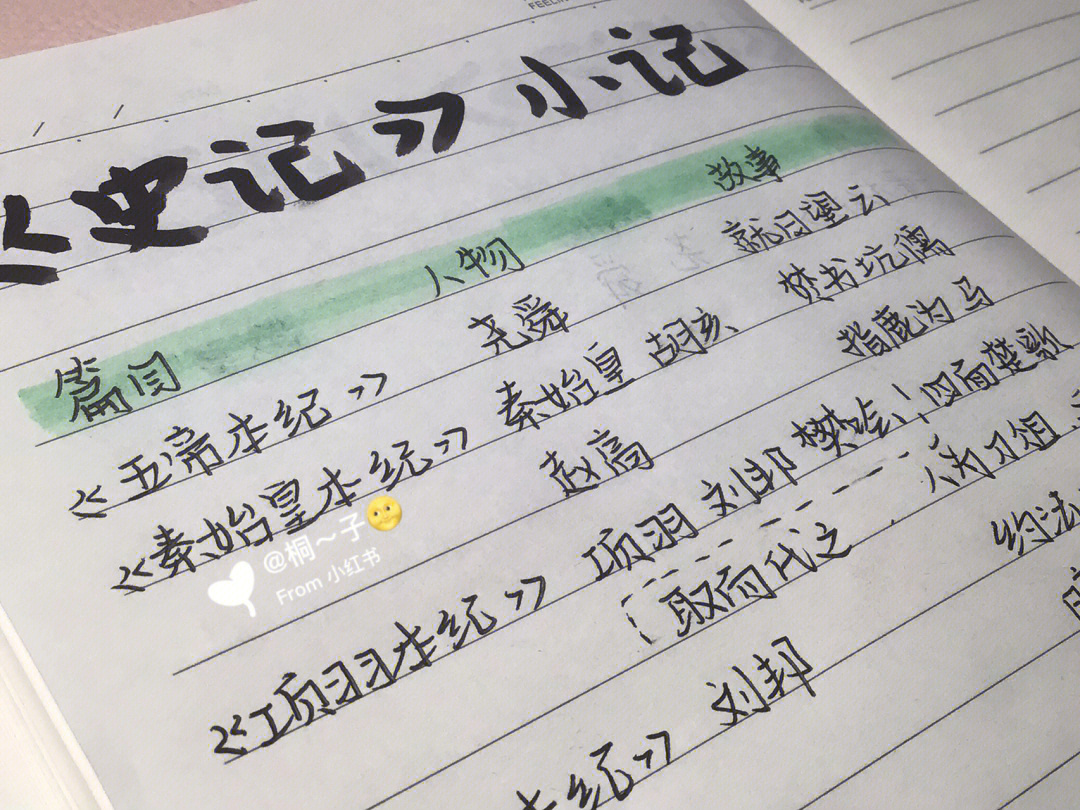 《史记》小记
篇目 人物 故事
《五帝本纪》 尧舜 就日望云
《秦始皇本纪》 秦始皇 胡亥 焚书坑儒
赵高 指鹿为马
《项羽本纪》 项羽 刘邦 樊哙 四面楚歌
取而代之 人为刀俎
本纪》 刘邦 约法
@桐～子🌝
From 小红书